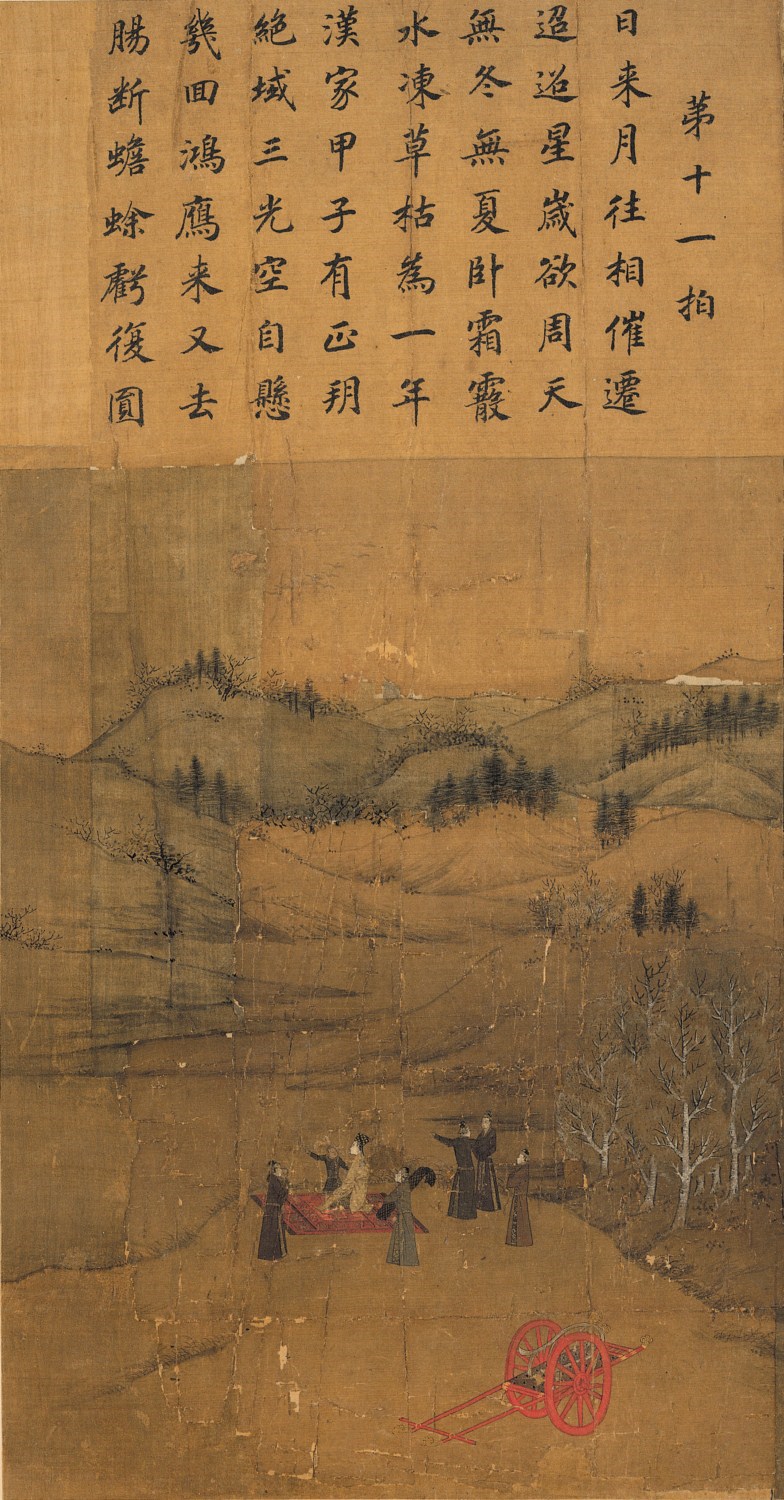 苐十一拍
日来月往相催遷
迢迢星歳欲周天
無冬無夏卧霜霰
水凍草枯為一年
漢家甲子有正朔
絶域三光空自懸
幾回鴻鴈来又去
腸断蟾蜍虧復圓